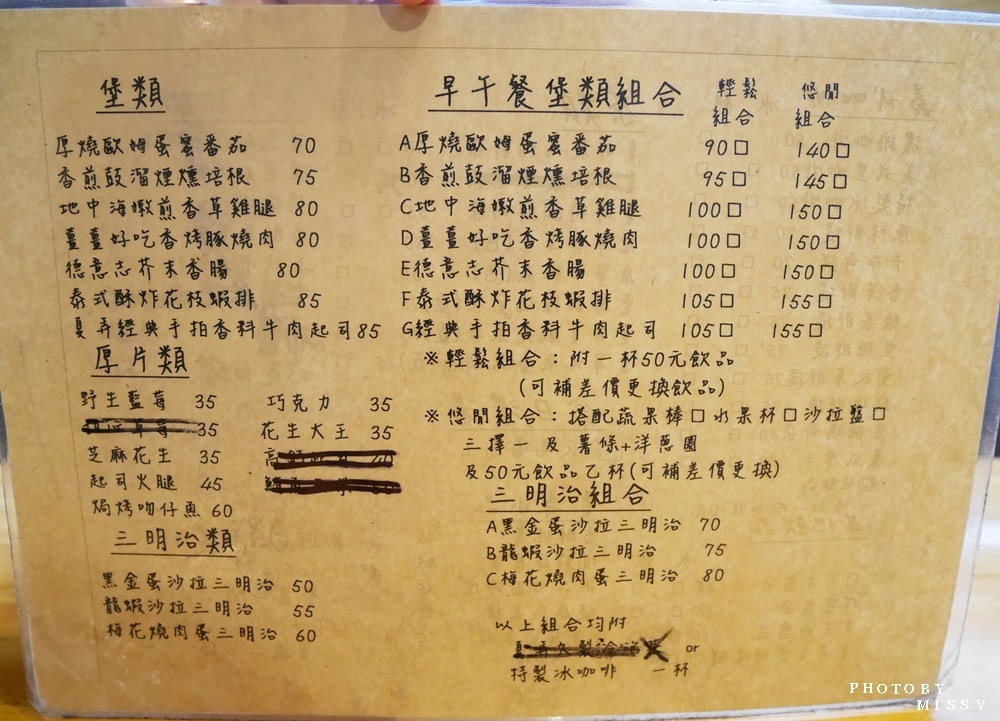 堡類
厚燒歐姆蛋蜜番茄 70
香煎鼓溜煙燻培根 75
地中海嫩煎香草雞腿 80
薑薑好吃香烤豚燒肉 80
德意志芥末香腸 80
泰式酥炸花枝蝦排 85
夏弄經典手拍香料牛肉起司 85
厚片類
野生藍莓 35 巧克力 35
35 花生大王 35
芝麻花生 35
起司火腿 45
焗烤吻仔魚 60
三明治類
黑金蛋沙拉三明治 50
龍蝦沙拉三明治 55
梅花燒肉蛋三明治 60
早午餐堡類組合 輕鬆組合 悠閒組合
A厚燒歐姆蛋蜜番茄 90□ 140□
B香煎鼓溜煙燻培根 95□ 145□
C地中海嫩煎香草雞腿 100□ 150□
D薑薑好吃香烤豚燒肉 100□ 150□
E德意志芥末香腸 100□ 150□
F泰式酥炸花枝蝦排 105□ 155□
G經典手拍香料牛肉起司 105□ 155□
※輕鬆組合：附一杯50元飲品
(可補差價更換飲品)
※悠閒組合：搭配蔬果棒□水果杯□沙拉盤□
三擇一及薯條+洋蔥圈
及50元飲品乙杯(可補差價更換)
三明治組合
A黑金蛋沙拉三明治 70
B龍蝦沙拉三明治 75
C梅花燒肉蛋三明治 80
以上組合均附
or
特製冰咖啡 一杯
PHOTO BY
MISS V